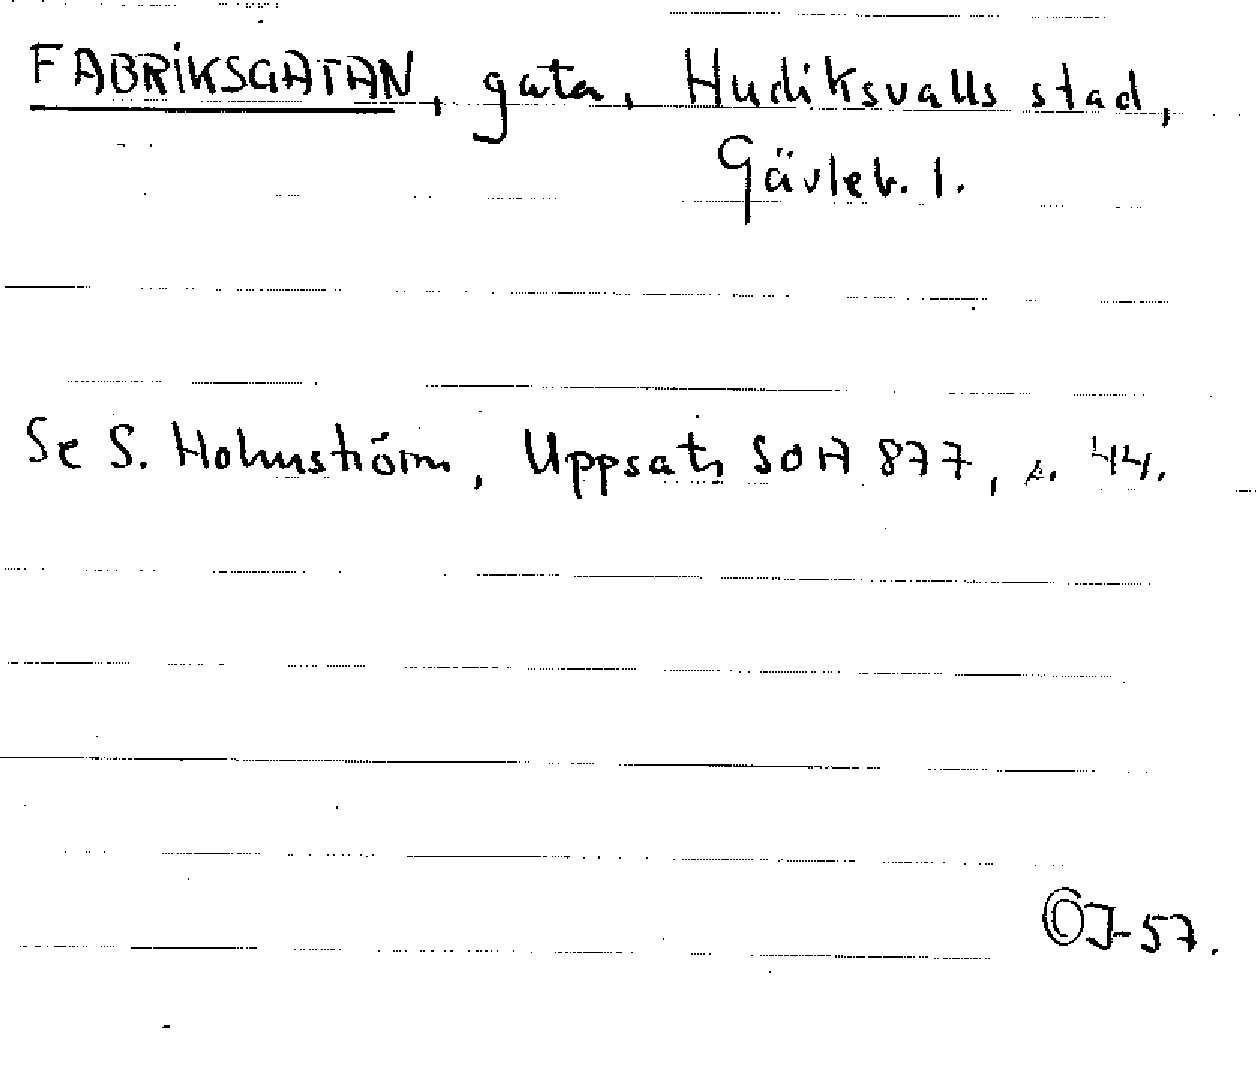 FABRIKSGATAN, gata, Hudiksvalls stad,
Gävleb. l.
Se S. Holmström, Uppsats SOA 877, s. 44.
OJ-57.